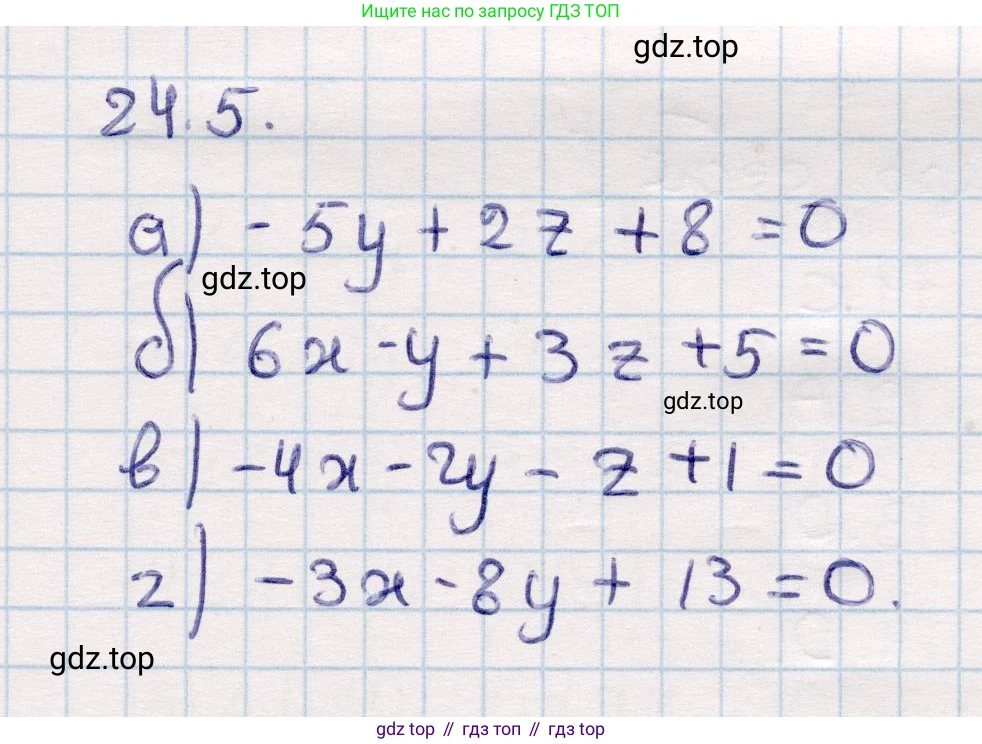 Ищите нас по запросу ГДЗ ТОП
gdz.top
24.5.
а) -5y + 2z + 8 = 0
gdz.top
б) 6x - y + 3z + 5 = 0
gdz.top
в) -4x - 2y - z + 1 = 0
г) -3x - 8y + 13 = 0.
gdz.top
gdz top // гдз топ // gdz top